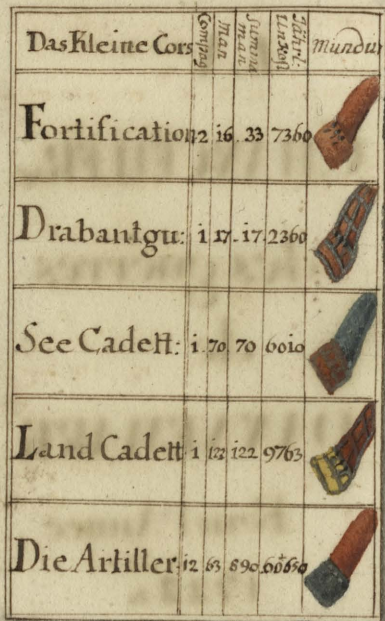 Das Kleine Cors Compag Man Summa man Jährl: Unkost Mundur
Fortification 2 i6 . 33 7360
Drabantgu: i 17 . i7 . 2360
See Cadett: i . 70 70 60i0
Land Cadett i i22 i22 9763
Die Artiller. i2 63 890